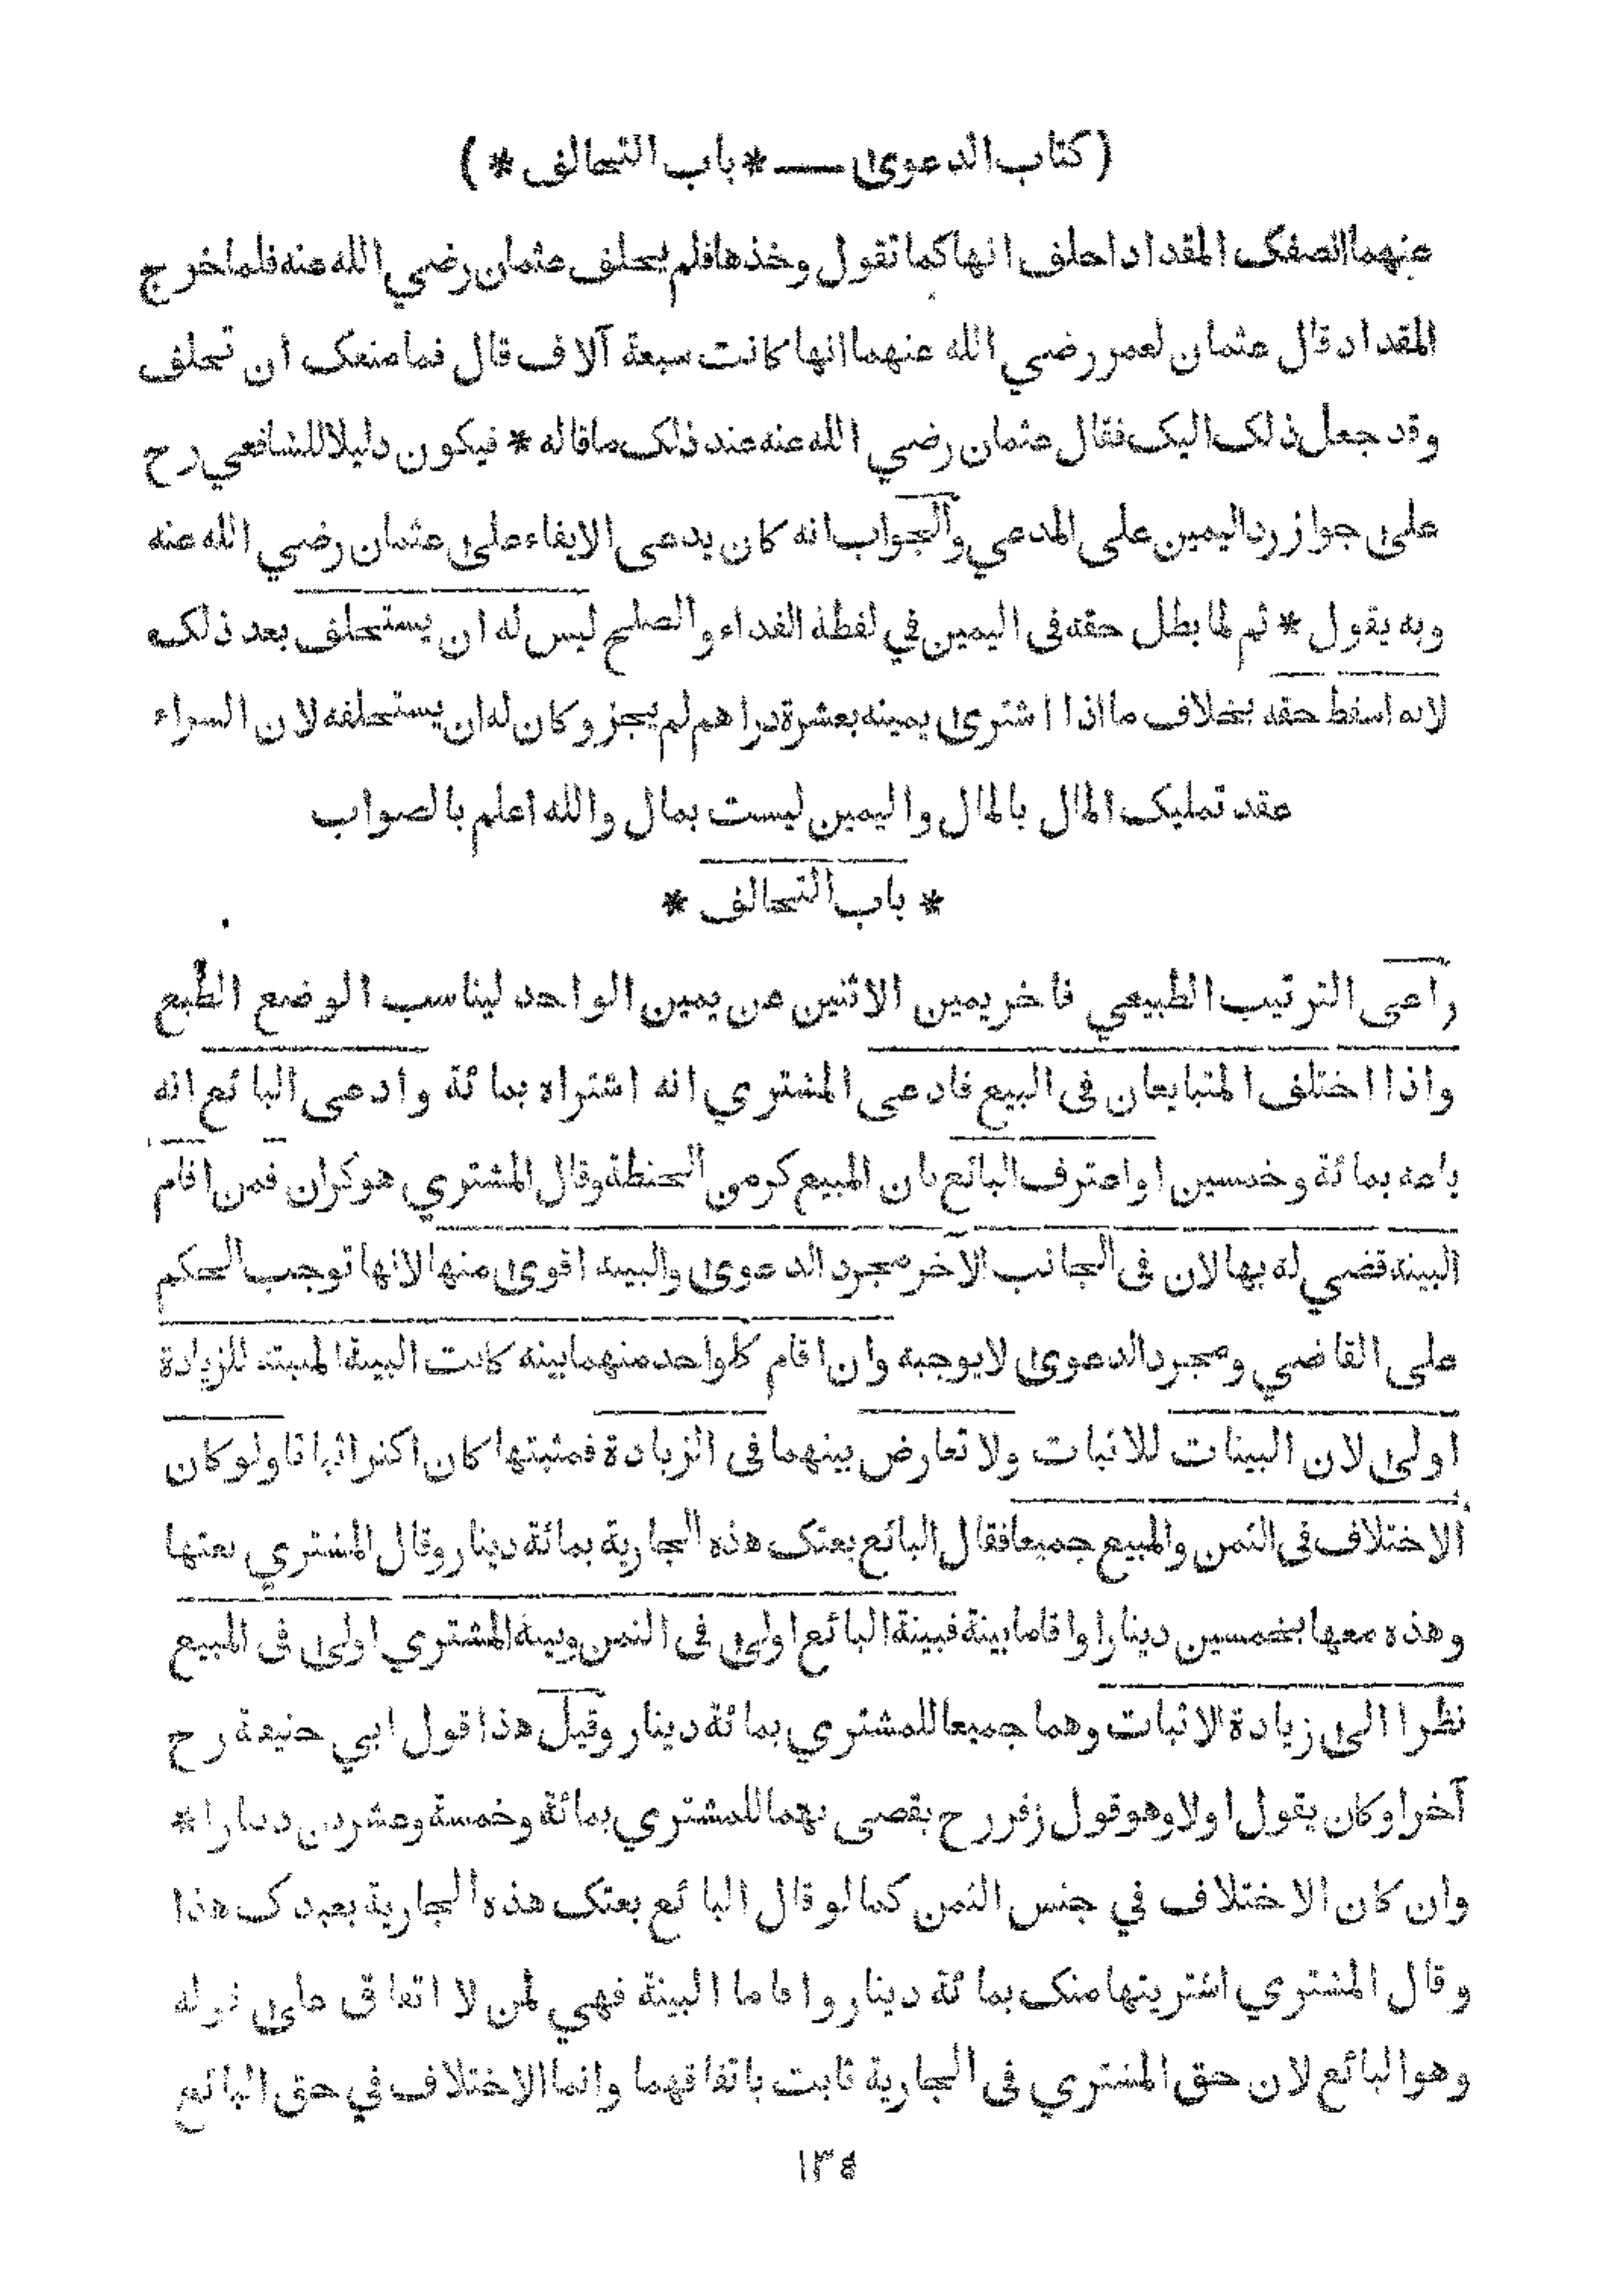 ( كتاب الدعوى — * باب التحالف * )
عنهما انصفك المقداد احلف انها كما تقول وخذها فلم يحلف عثمان رضي الله عنه فلما خرج
المقداد قال عثمان لعمر رضي الله عنهما انها كانت سبعة آلاف قال فما منعك ان تحلف
وقد جعل ذلك اليك فقال عثمان رضي الله عنه عند ذلك ما قاله * فيكون دليلا للشافعي رح
على جواز رد اليمين على المدعي والجواب انه كان يدعى الايفاء على عثمان رضي الله عنه
وبه يقول * ثم لما بطل حقه فى اليمين في لفظة الفداء والصلح ليس له ان يستحلف بعد ذلك
لانه اسقط حقه بخلاف ما اذا اشترى يمينه بعشرة دراهم لم يجز وكان له ان يستحلفه لان الشراء
عقد تمليك المال بالمال واليمين ليست بمال والله اعلم بالصواب
* باب التحالف *
راعى الترتيب الطبيعي فاخر يمين الاثنين عن يمين الواحد ليناسب الوضع الطبع
واذا اختلف المتبايعان فى البيع فادعى المشتري انه اشتراه بمائة وادعى البائع انه
باعه بمائة وخمسين او اعترف البائع بان المبيع كر من الحنطة وقال المشتري هو كران فمن اقام
البينة قضي له بها لان فى الجانب الآخر مجرد الدعوى والبينة اقوى منها لانها توجب الحكم
على القاضي ومجرد الدعوى لا يوجبه وان اقام كل واحد منهما بينة كانت البينة المثبتة للزيادة
اولى لان البينات للاثبات ولا تعارض بينهما فى الزيادة فمثبتها كان اكثر اثباتا ولو كان
الاختلاف فى الثمن والمبيع جميعا فقال البائع بعتك هذه الجارية بمائة دينار وقال المشتري بعتها
وهذه معها بخمسين دينارا واقاما بينة فبينة البائع اولى فى الثمن وبينة المشتري اولى فى المبيع
نظرا الى زيادة الاثبات وهما جميعا للمشتري بمائة دينار وقيل هذا قول ابي حنيفة رح
آخرا وكان يقول اولا وهو قول زفر رح يقضى بهما للمشتري بمائة وخمسة وعشرين دينارا *
وان كان الاختلاف في جنس الثمن كما لو قال البائع بعتك هذه الجارية بعبدك هذا
وقال المشتري اشتريتها منك بمائة دينار واقاما البينة فهي لمن لا اتفاق على قوله
وهو البائع لان حق المشتري فى الجارية ثابت باتفاقهما وانما الاختلاف في حق البائع
١٣٤